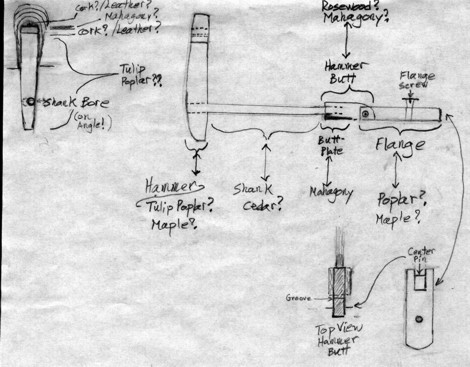 Cork?/Leather?
Mahagony?
Cork?/Leather?
Tulip
Poplar??
Shank Bore
(on
Angle!)
Rosewood?
Mahagony?
Hammer
Butt
Flange
Screw
Butt-
Plate
Flange
Hammer
Tulip Poplar?
Maple?
Shank
Cedar?
Mahagony
Poplar?
Maple?
Groove
Center
Pin
Top View
Hammer
Butt